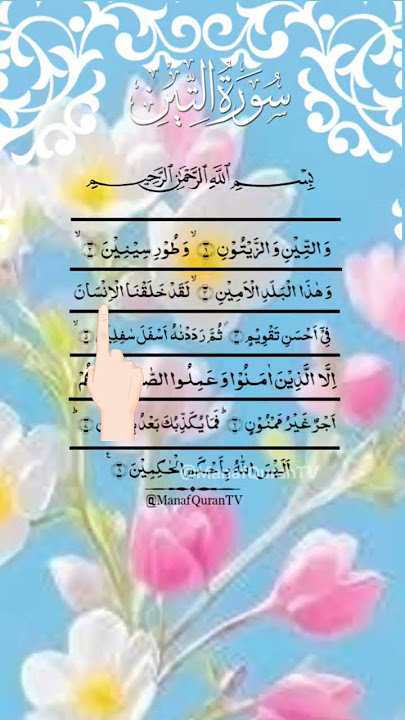 سُورَةُ التِّينِ
بِسْمِ ٱللَّهِ ٱلرَّحْمَٰنِ ٱلرَّحِيمِ
وَالتِّيْنِ وَالزَّيْتُوْنِ ۝١ۙ وَطُوْرِ سِيْنِيْنَ ۝٢ۙ
وَهٰذَا الْبَلَدِ الْاَمِيْنِ ۝٣ۙ لَقَدْ خَلَقْنَا الْاِنْسَانَ
فِيْٓ اَحْسَنِ تَقْوِيْمٍ ۝٤ۖ ثُمَّ رَدَدْنٰهُ اَسْفَلَ سٰفِلِيْنَ ۝٥ۙ
اِلَّا الَّذِيْنَ اٰمَنُوْا وَعَمِلُوا
اَجْرٌ غَيْرُ مَمْنُوْنٍ ۝٦ۗ فَمَا يُكَذِّبُكَ بَعْدُ
اَلَيْسَ اللّٰهُ بِاَحْكَمِ الْحٰكِمِيْنَ ۝٨
@ManafQuranTV
@ManafQuranTV